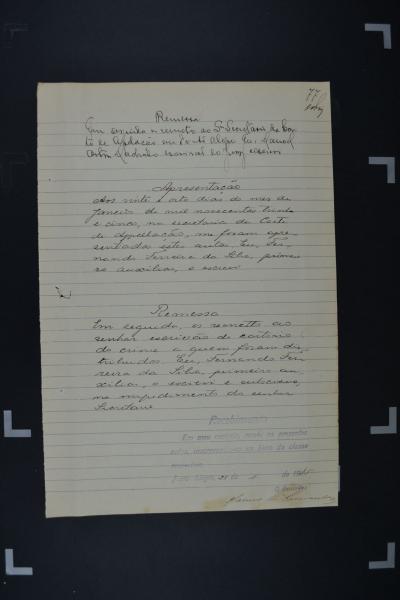 77
Remessa
Em seguida remetto ao Sr Secretario da Cor-
te de Apelação em Porto Alegre Eu,
escrivão do jury
Apresentação
Aos vinte e oito dias do mez de
Janeiro de mil novecentos trinta
e cinco, na secretaria da Corte
de Appellação, me foram apre-
sentados estes autos. Eu, Fer-
nando Ferreira da Silva, primei-
ro auxiliar, o escrevi
Remessa
Em seguida, os remetto ao
senhor escrivão do cartorio
do crime a quem foram dis-
tribuidos. Eu, Fernando Fer-
reira da Silva, primeiro au-
xiliar, o escrevi e subscrevo,
no impedimento do senhor
Secretario
Recebimento
Em meu cartorio, recebi os presentes
autos,
Porto Alegre, 28 de 1 de 1935
O escrivão